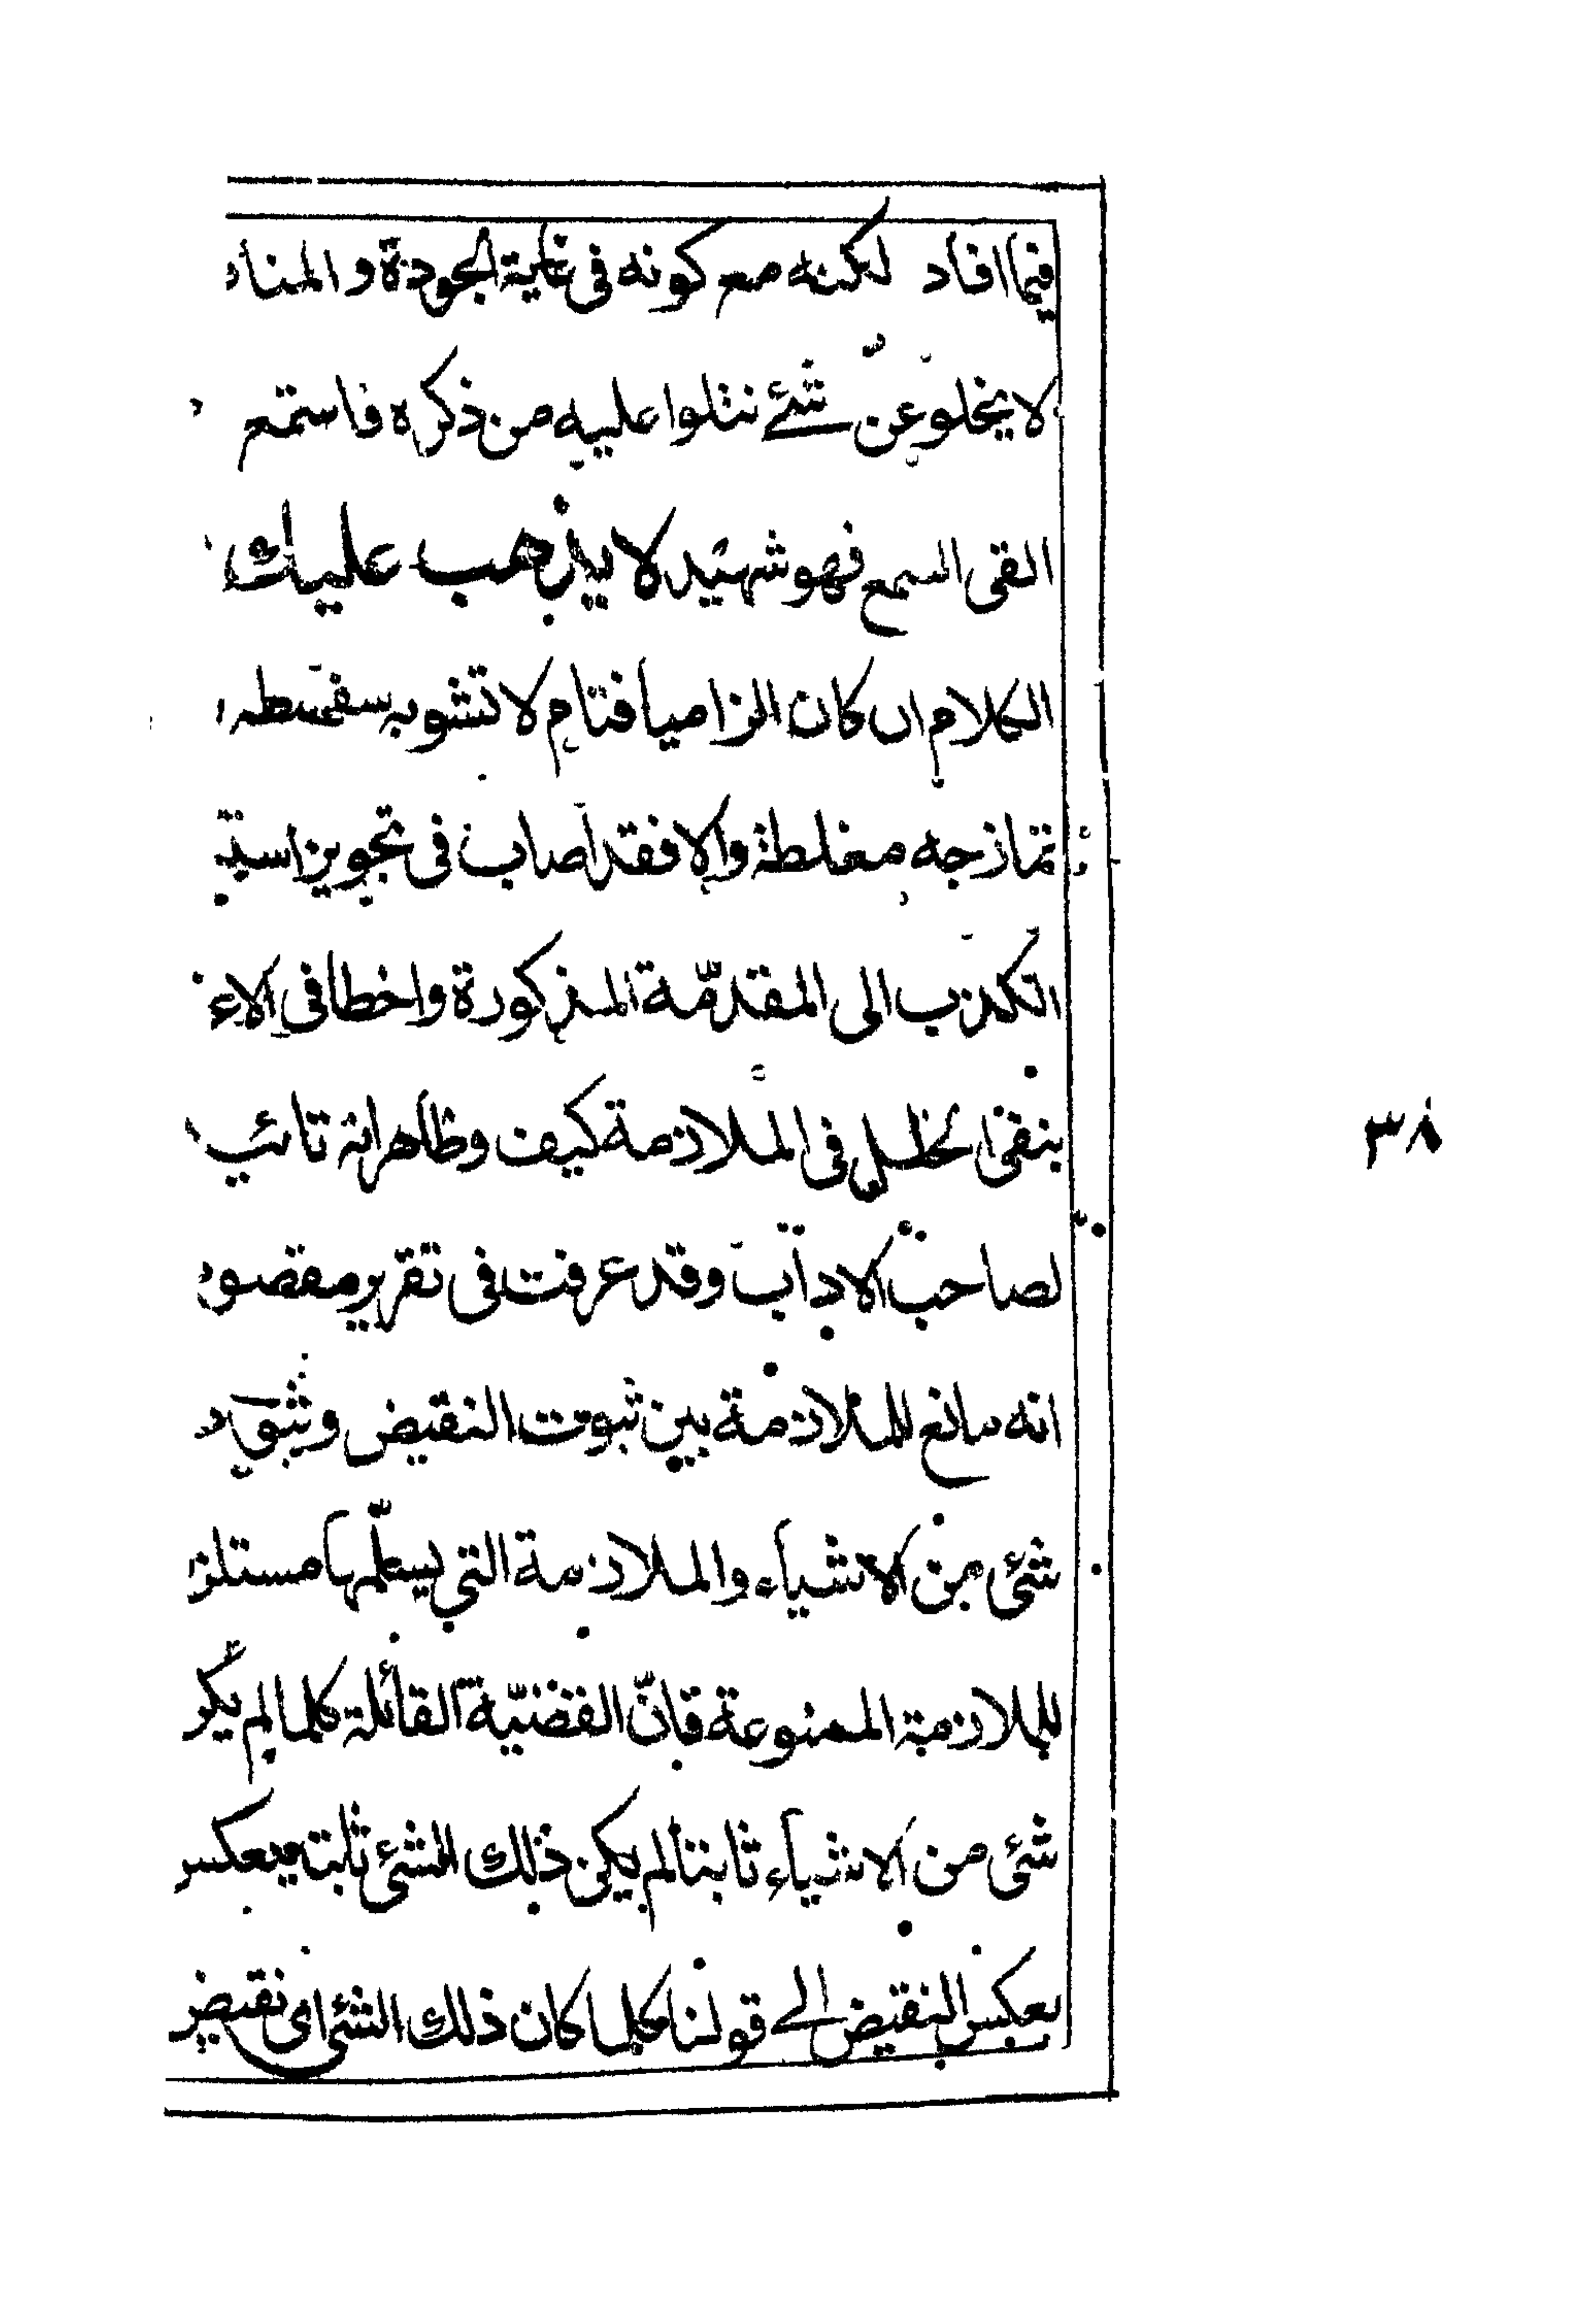 فيما افاد لكنه مع كونه في غاية الجودة و المتاء
لا يخلو عن شئ نتلوا عليه من ذكره فاستمع
القى السمع فهو شهيد لا يذهب عليك
الكلام ان كان الزاميا فتام لا تشوبه سفسطه
تمازجه مغلطة والا فقد اصاب في تجويز
الكذب الى المقدّمة المذكورة واخطا في الاع
بنفى الخلل في الملازمة كيف وظاهر انه تائب
لصاحب الاداب وقد عرفت في تقرير مقصو
انه مانع للملازمة بين ثبوت النقيض و
شئ من الاشياء والملازمة التي يسلّمها مستلز
للملازمة الممنوعة فانّ القضيّة القائلة كلما لم يكن
شئ من الاشياء ثابتا لم يكن ذلك الشئ ثابتا ينعكس
بعكس النقيض الى قولنا كلما كان ذلك الشئ اى نقيض
٣٨